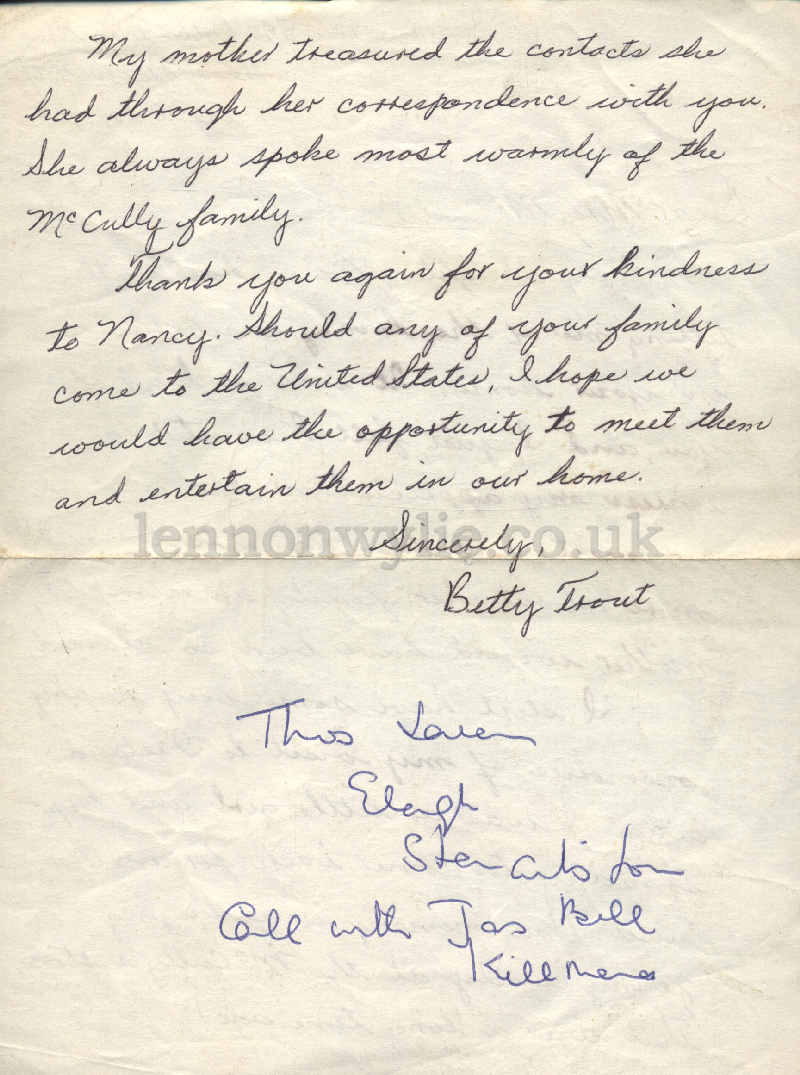 My mother treasured the contacts she
had through her correspondence with you.
She always spoke most warmly of the
McCully family.
Thank you again for your kindness
to Nancy. Should any of your family
come to the United States, I hope we
would have the opportunity to meet them
and entertain them in our home.
lennonwylie.co.uk
Sincerely,
Betty Trout
Thos
Elagh
Call with Jas Bell